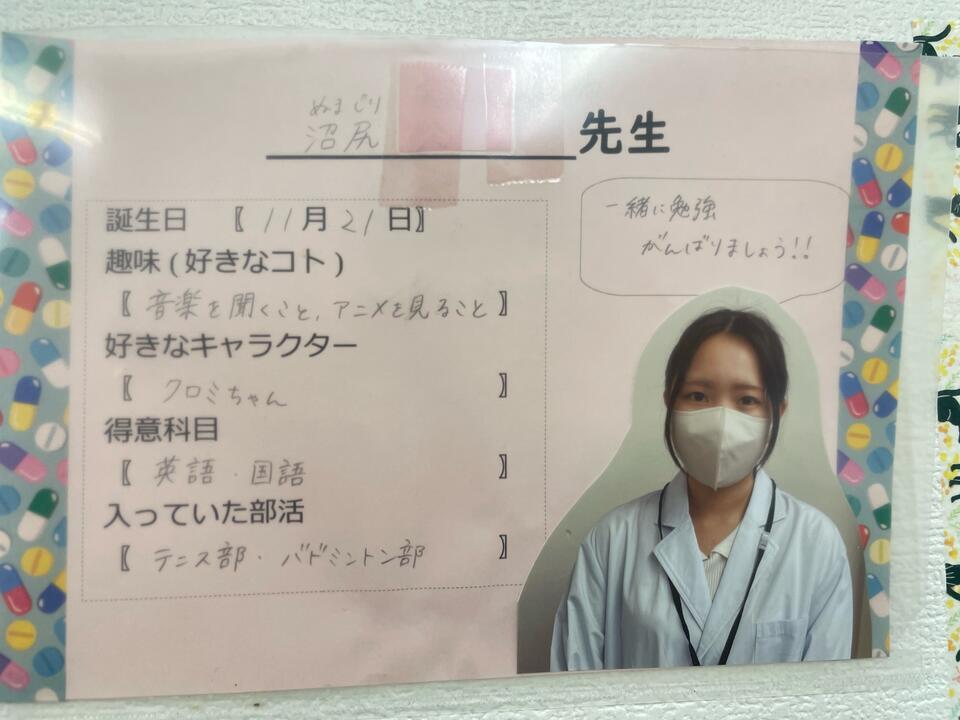 ぬまじり
沼尻 先生
誕生日 【11月21日】
趣味(好きなコト)
【音楽を聞くこと, アニメを見ること】
好きなキャラクター
【クロミちゃん】
得意科目
【英語・国語】
入っていた部活
【テニス部・バドミントン部】
一緒に勉強
がんばりましょう!!